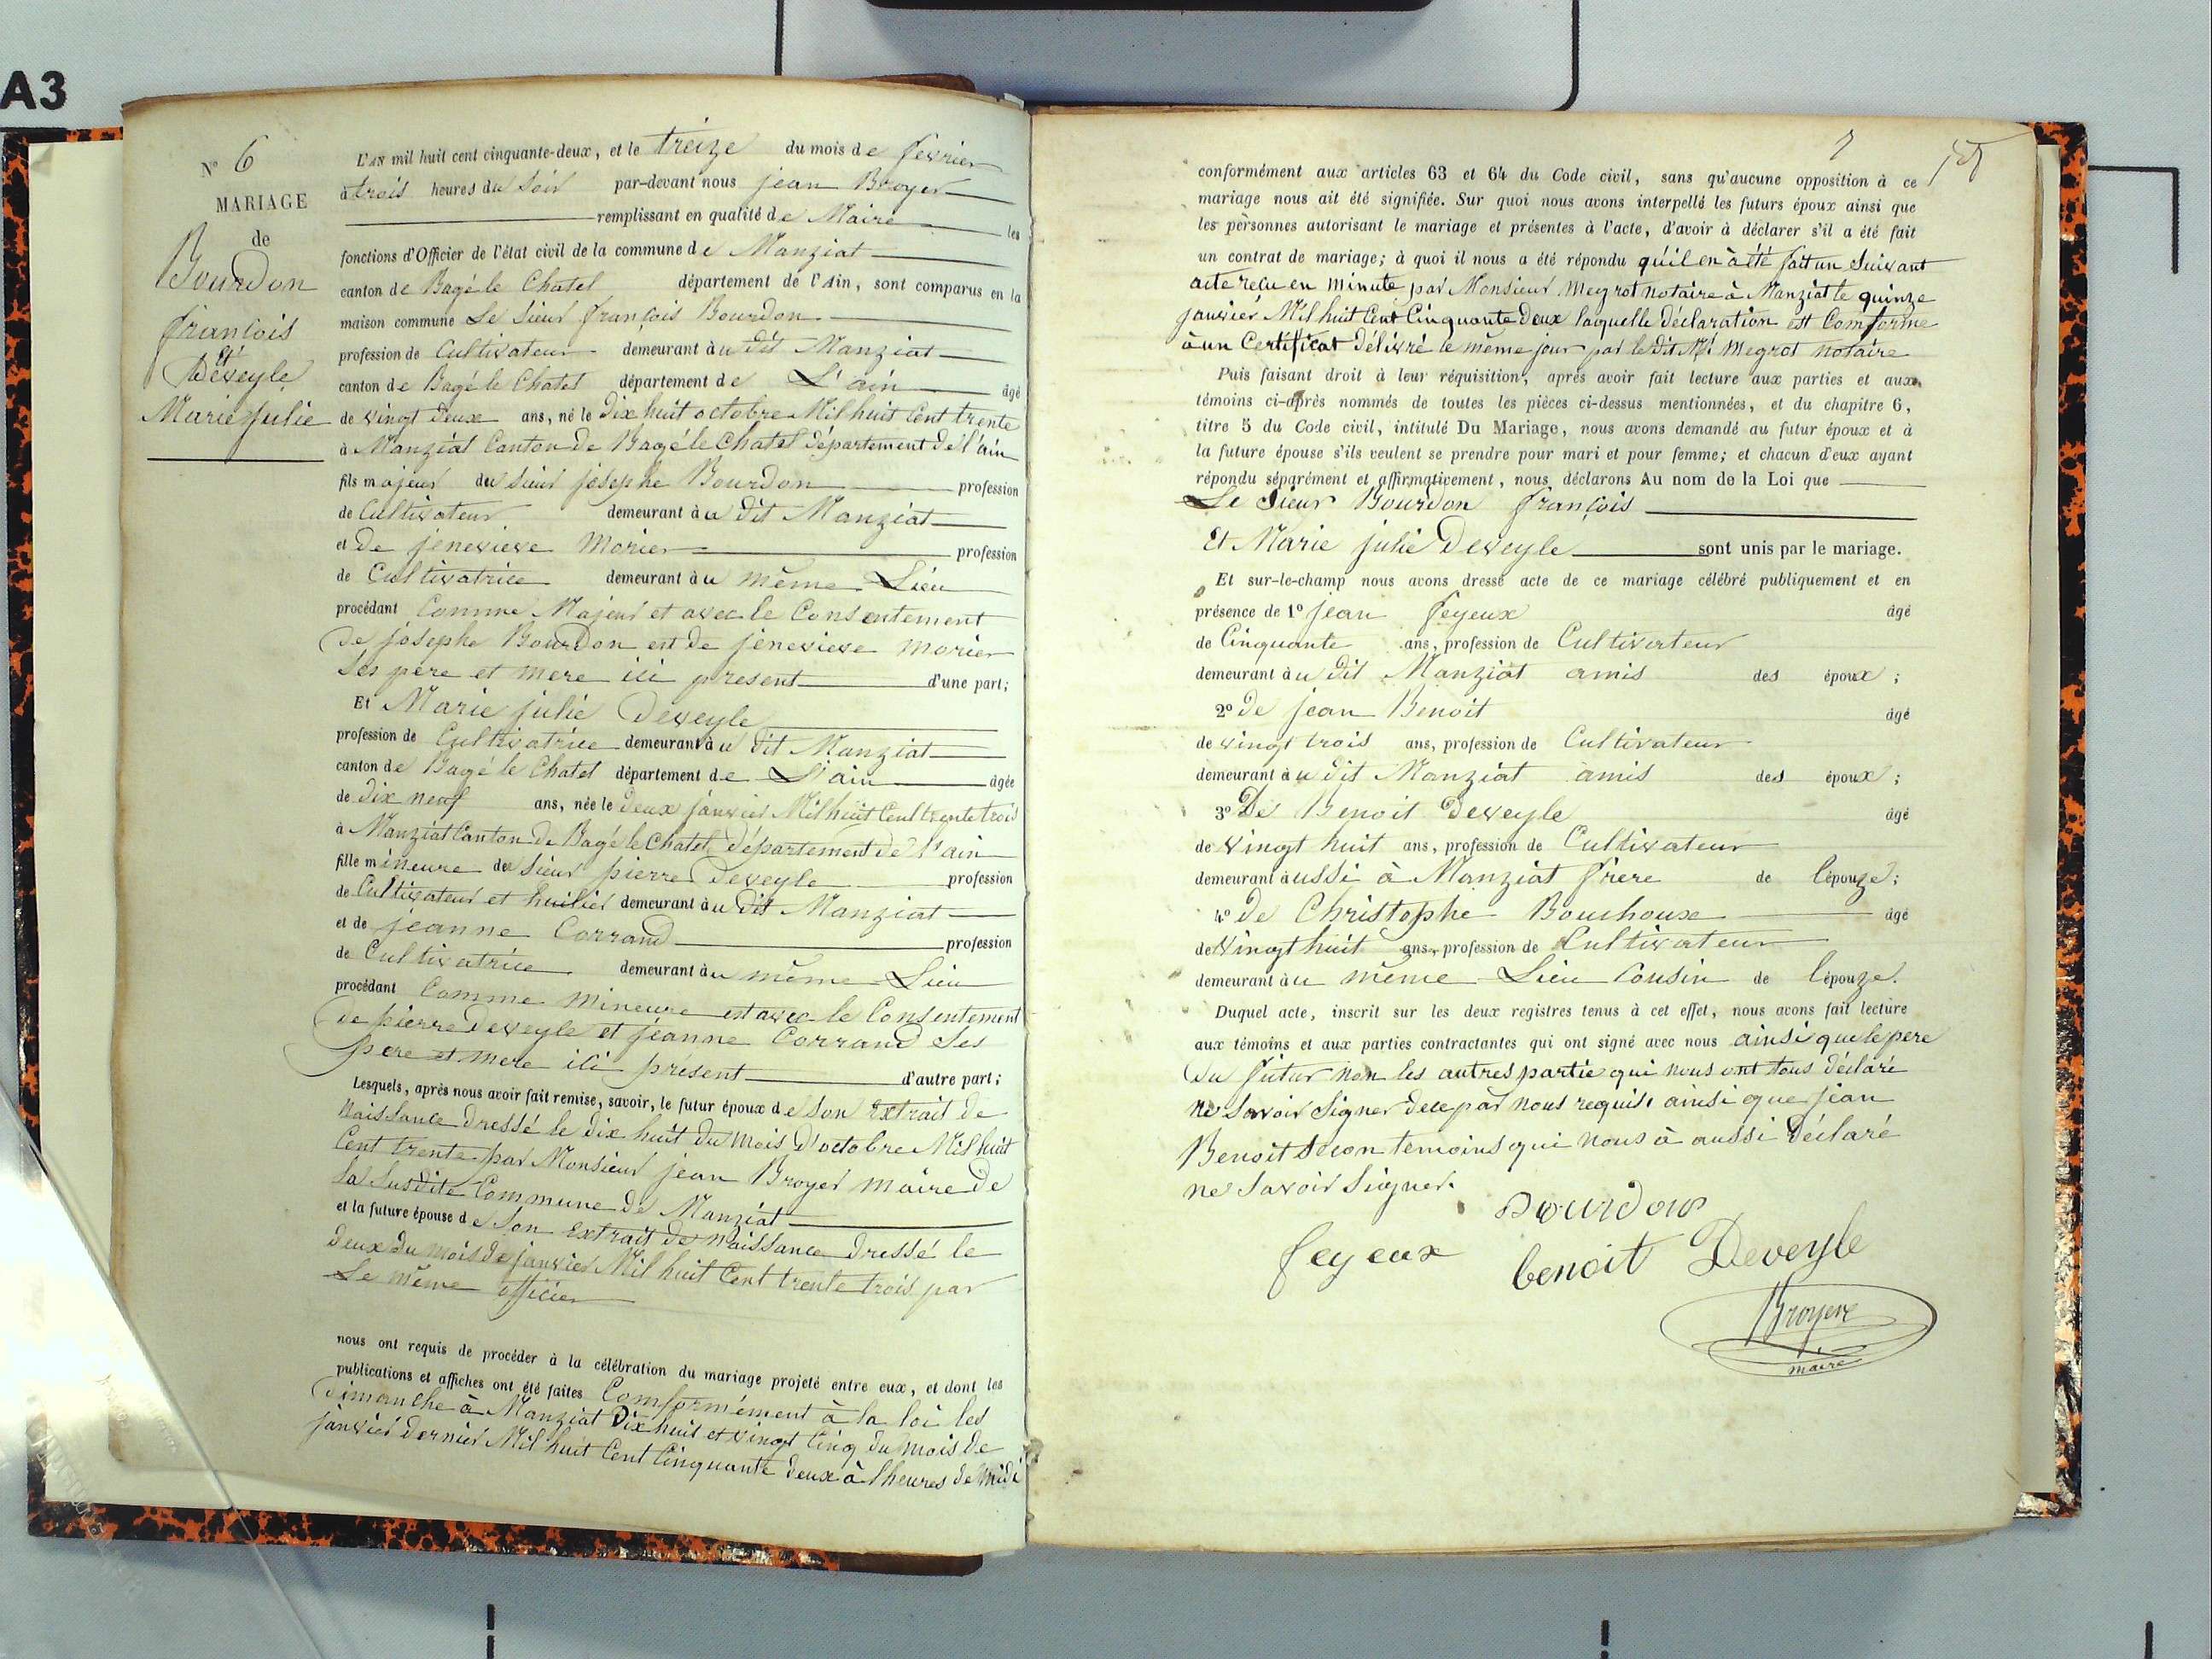 A3
N° 6
MARIAGE
de
Bourdon
françois
et
Deveyle
Marie Julie
L'AN mil huit cent cinquante-deux, et le treize du mois de fevrier
à trois heures du Soir par-devant nous jean Broyer
remplissant en qualité de Maire les
fonctions d'Officier de l'état civil de la commune de Manziat
canton de Bagé le Chatel département de l'Ain, sont comparus en la
maison commune Le Sieur françois Bourdon
profession de Cultivateur demeurant à u dit Manziat
canton de Bagé le Chatel département de L'ain âgé
de vingt deux ans, né le Dix huit octobre Mil huit Cent trente
à Manziat Canton de Bagé le Chatel département de l'ain
fils majeur du Sieur josephe Bourdon profession
de Cultivateur demeurant à u dit Manziat
et de jenevieve Morier profession
de Cultivatrice demeurant à u même Lieu
procédant Comme Majeur et avec le Consentement
de josephe Bourdon est de jenevieve morier
Ses pere et mere ici present d'une part;
Et Marie julie Deveyle
profession de Cultivatrice demeurant à u dit Manziat
canton de Bagé le Chatel département de L'ain âgée
de dix neuf ans, née le Deux janvier Mil huit Cent trente trois
à Manziat Canton de Bagé le Chatel département de l'ain
fille mineure du Sieur pierre Deveyle profession
de Cultivateur et huilier demeurant à u dit Manziat
et de jeanne Corrand profession
de Cultivatrice demeurant à u même Lieu
procédant Comme Mineure est avec le Consentement
de pierre Deveyle et jeanne Corrand Ses
pere et mere ici présent d'autre part;
Lesquels, après nous avoir fait remise, savoir, le futur époux de Son Extrait de
naissance Dressé le dix huit du Mois D'octobre Mil huit
Cent trente par Monsieur jean Broyer maire de
La Susdite Commune de Manziat
et la future épouse de Son Extrait de Naissance Dressé le
deux du mois de janvier Mil huit Cent trente trois par
Le même officier
nous ont requis de procéder à la célébration du mariage projeté entre eux, et dont les
publications et affiches ont été faites Comformément à la loi les
dimanche à Manziat Dix huit et vingt Cinq du mois de
janvier dernier Mil huit Cent Cinquante deux à l'heures de Midi
7
conformément aux articles 63 et 64 du Code civil, sans qu'aucune opposition à ce
mariage nous ait été signifiée. Sur quoi nous avons interpellé les futurs époux ainsi que
les personnes autorisant le mariage et présentes à l'acte, d'avoir à déclarer s'il a été fait
un contrat de mariage; à quoi il nous a été répondu qu'il en à été fait un Suivant
acte reçu en minute par Monsieur Meyrot notaire à Manziat le quinze
janvier Mil huit Cent Cinquante Deux laquelle déclaration est Comforme
à un Certificat délivré le même jour par le dit Mr Megrot notaire
Puis faisant droit à leur réquisition, après avoir fait lecture aux parties et aux
témoins ci-après nommés de toutes les pièces ci-dessus mentionnées, et du chapitre 6,
titre 5 du Code civil, intitulé Du Mariage, nous avons demandé au futur époux et à
la future épouse s'ils veulent se prendre pour mari et pour femme; et chacun d'eux ayant
répondu séparément et affirmativement, nous déclarons Au nom de la Loi que
Le Sieur Bourdon françois
Et Marie julie Deveyle sont unis par le mariage.
Et sur-le-champ nous avons dressé acte de ce mariage célébré publiquement et en
présence de 1° jean feyeux âgé
de Cinquante ans, profession de Cultivateur
demeurant à u dit Manziat amis des époux;
2° de jean Benoit âgé
de vingt trois ans, profession de Cultivateur
demeurant à u dit Manziat amis des époux;
3° De Benoit Deveyle âgé
de vingt huit ans, profession de Cultivateur
demeurant aussi à Manziat frere de l'épouze;
4° de Christophe Bouchoux âgé
de Vingt huit ans, profession de Cultivateur
demeurant à u même Lieu Cousin de l'épouze.
Duquel acte, inscrit sur les deux registres tenus à cet effet, nous avons fait lecture
aux témoins et aux parties contractantes qui ont signé avec nous ainsi que le pere
Du futur non les autres partie qui nous ont tous déclaré
ne Savoir Signer de ce par nous requis ainsi que jean
Benoit Secon temoins qui nous à aussi déclaré
ne Savoir Signer.
Bourdon
feyeux benoit Deveyle
Broyer
maire